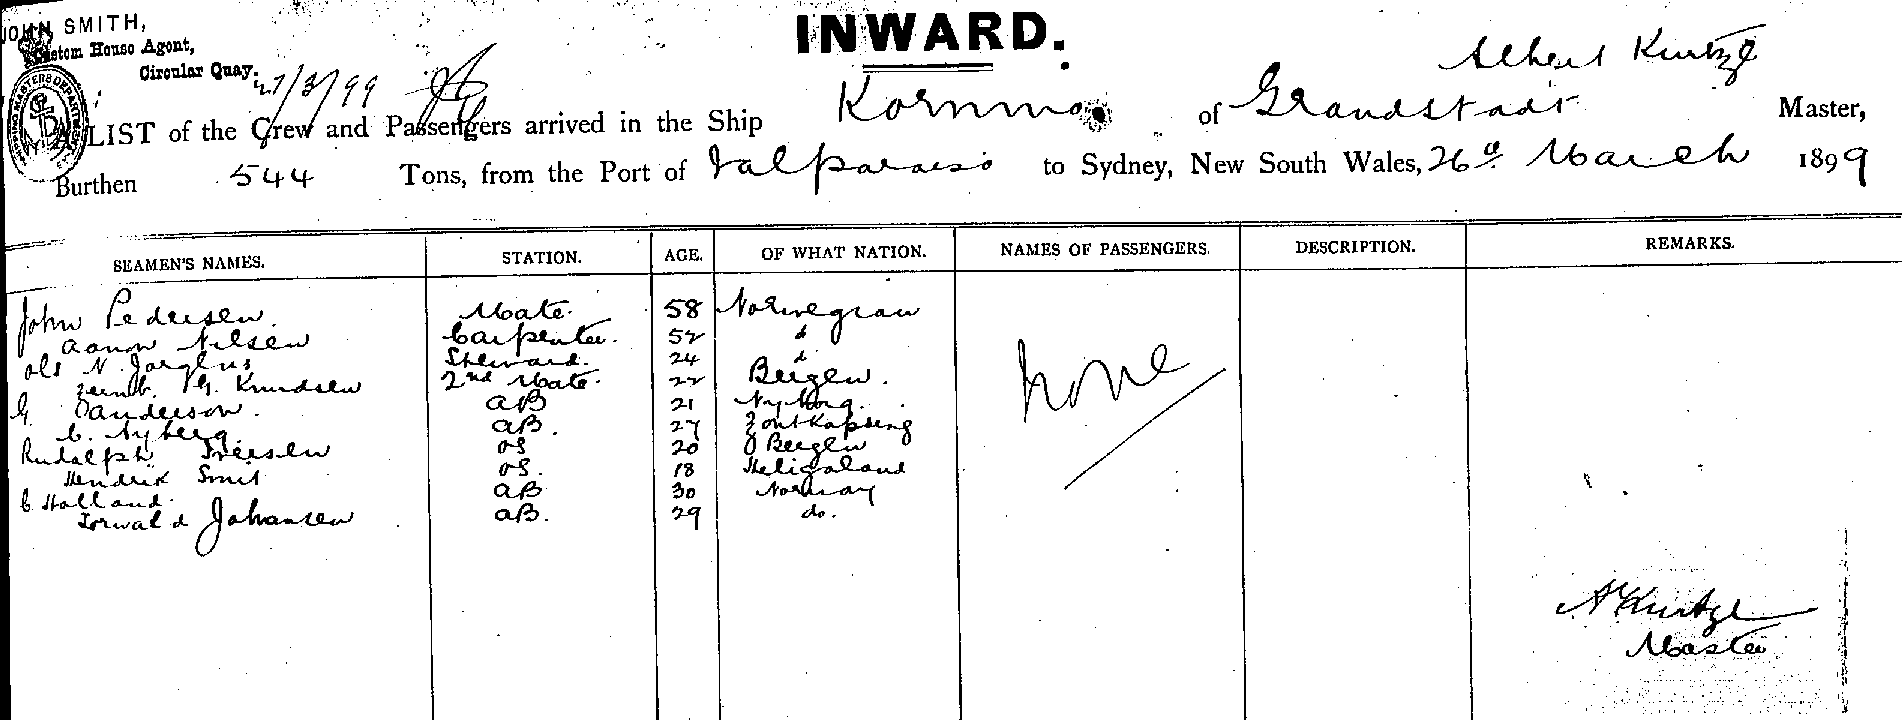 JOHN SMITH,
Custom House Agent,
Circular Quay.
INWARD.
27/3/99
Albert Kurtze
A LIST of the Crew and Passengers arrived in the Ship Kornmo of Grandstadt Master,
Burthen 544 Tons, from the Port of Valparaiso to Sydney, New South Wales, 26th March 1899
SEAMEN'S NAMES. STATION. AGE. OF WHAT NATION. NAMES OF PASSENGERS. DESCRIPTION. REMARKS.
John Pedersen Mate. 58 Norwegian
Aanon Nilsen Carpenter. 52 d
Ole N. Steward. 24 d
Knudsen 2nd Mate. 22 Bergen.
G. Danderson. AB 21
C. Nyberg AB. 27
Rudolph OS 20 Bergen
Hendrik Smit OS. 18 Heligoland
C Holland. AB 30 Norway
Torwald Johansen AB. 29 do.
None
A Kurtze
Master